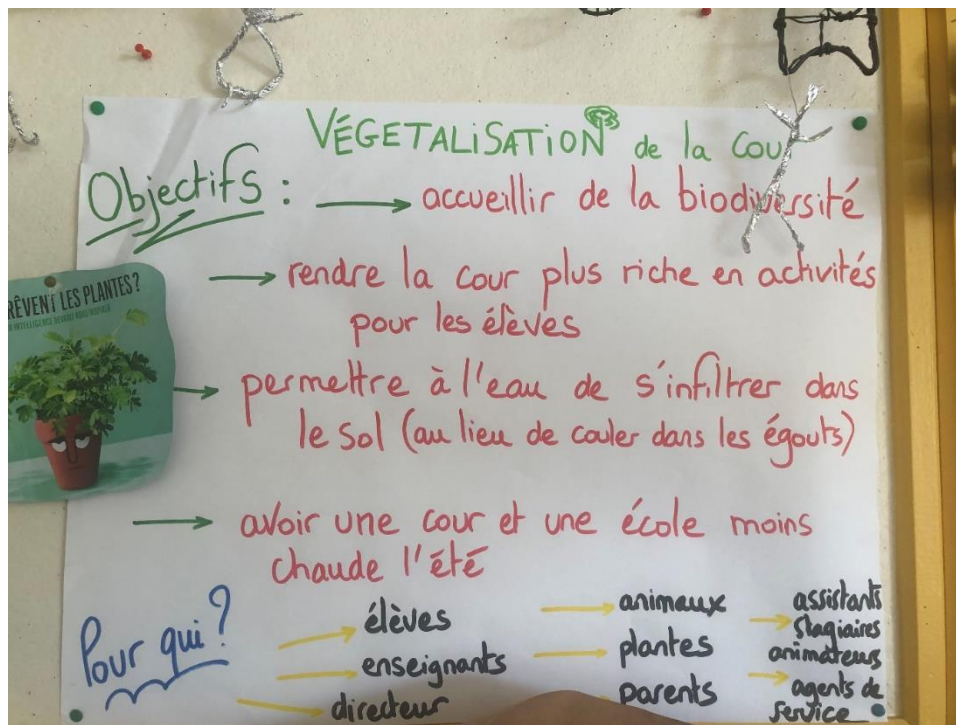 VÉGETALISATION de la cou
Objectifs : → accueillir de la biodiversité
→ rendre la cour plus riche en activités
pour les élèves
RÊVENT LES PLANTES ?
→ permettre à l'eau de s'infiltrer dans
le sol (au lieu de couler dans les égouts)
→ avoir une cour et une école moins
chaude l'été
Pour qui ?
→ élèves
→ enseignants
→ directeur
→ animaux
→ plantes
parents
assistants
→ stagiaires
animateurs
→ agents de
service